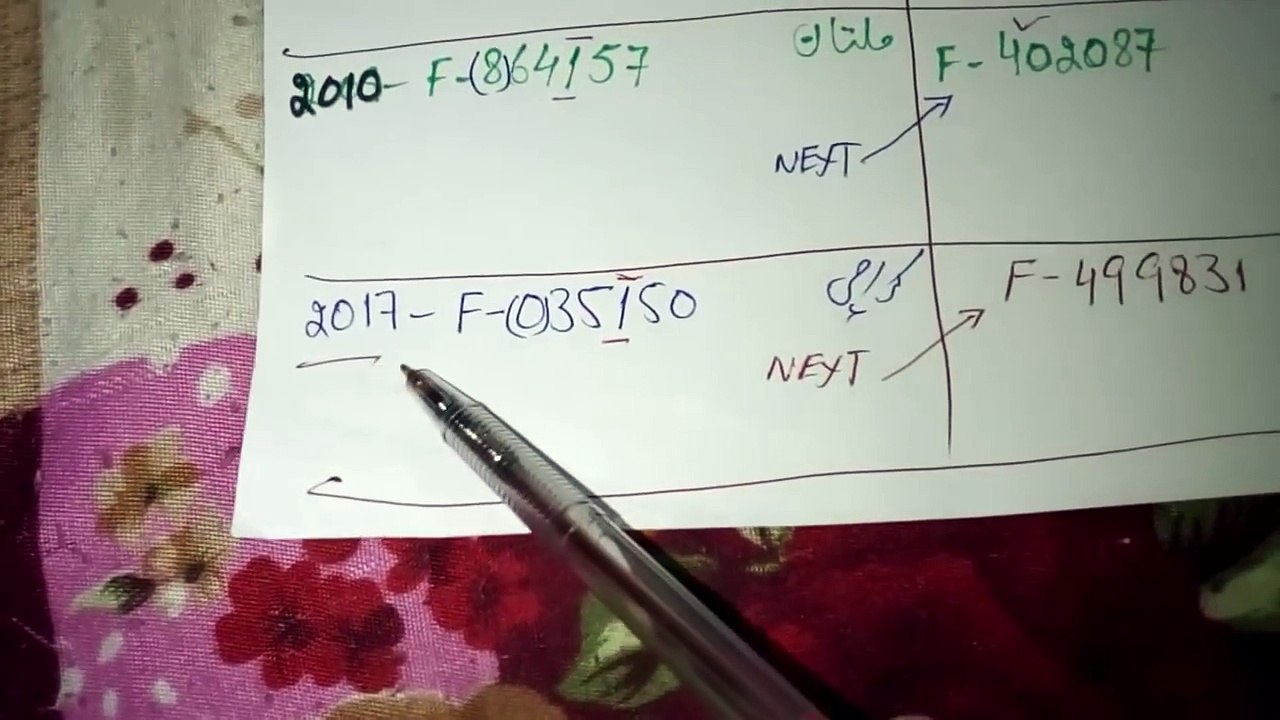 2010- F-(8)64157 ملتان F- 402087
NEXT
2017- F-(0)35150 کراچی F- 499831
NEXT